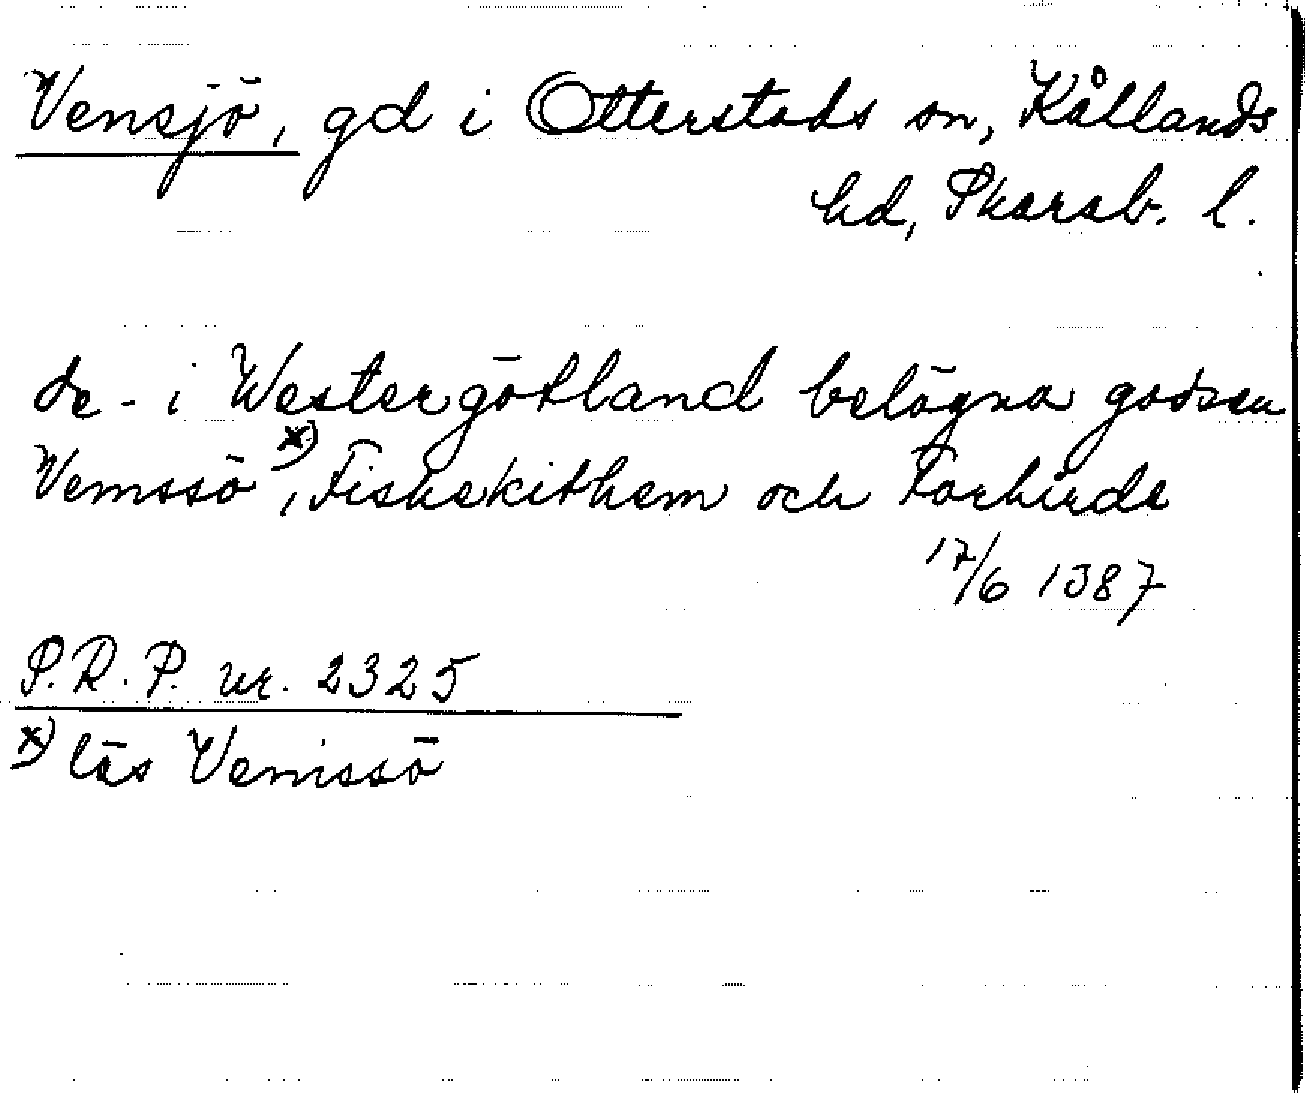 Vensjö, gd i Otterstads sn, Kållands
hd, Skarab. l.
de - i Westergötland belägna godsen
Vemssö x), Fiskekithem och Torhirde
17/6 1387
S.R.P. nr. 2325
x) läs Venissö